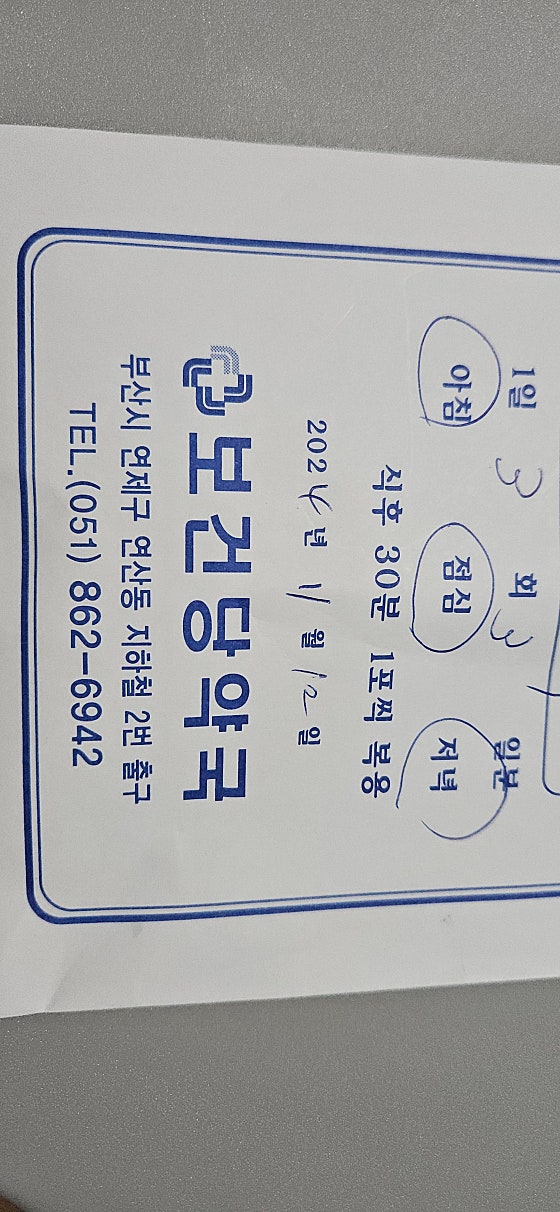 1일 3 회 3 일분
아침 점심 저녁
식후 30분 1포씩 복용
2024년 11월 12일
보건당약국
부산시 연제구 연산동 지하철 2번 출구
TEL.(051) 862-6942